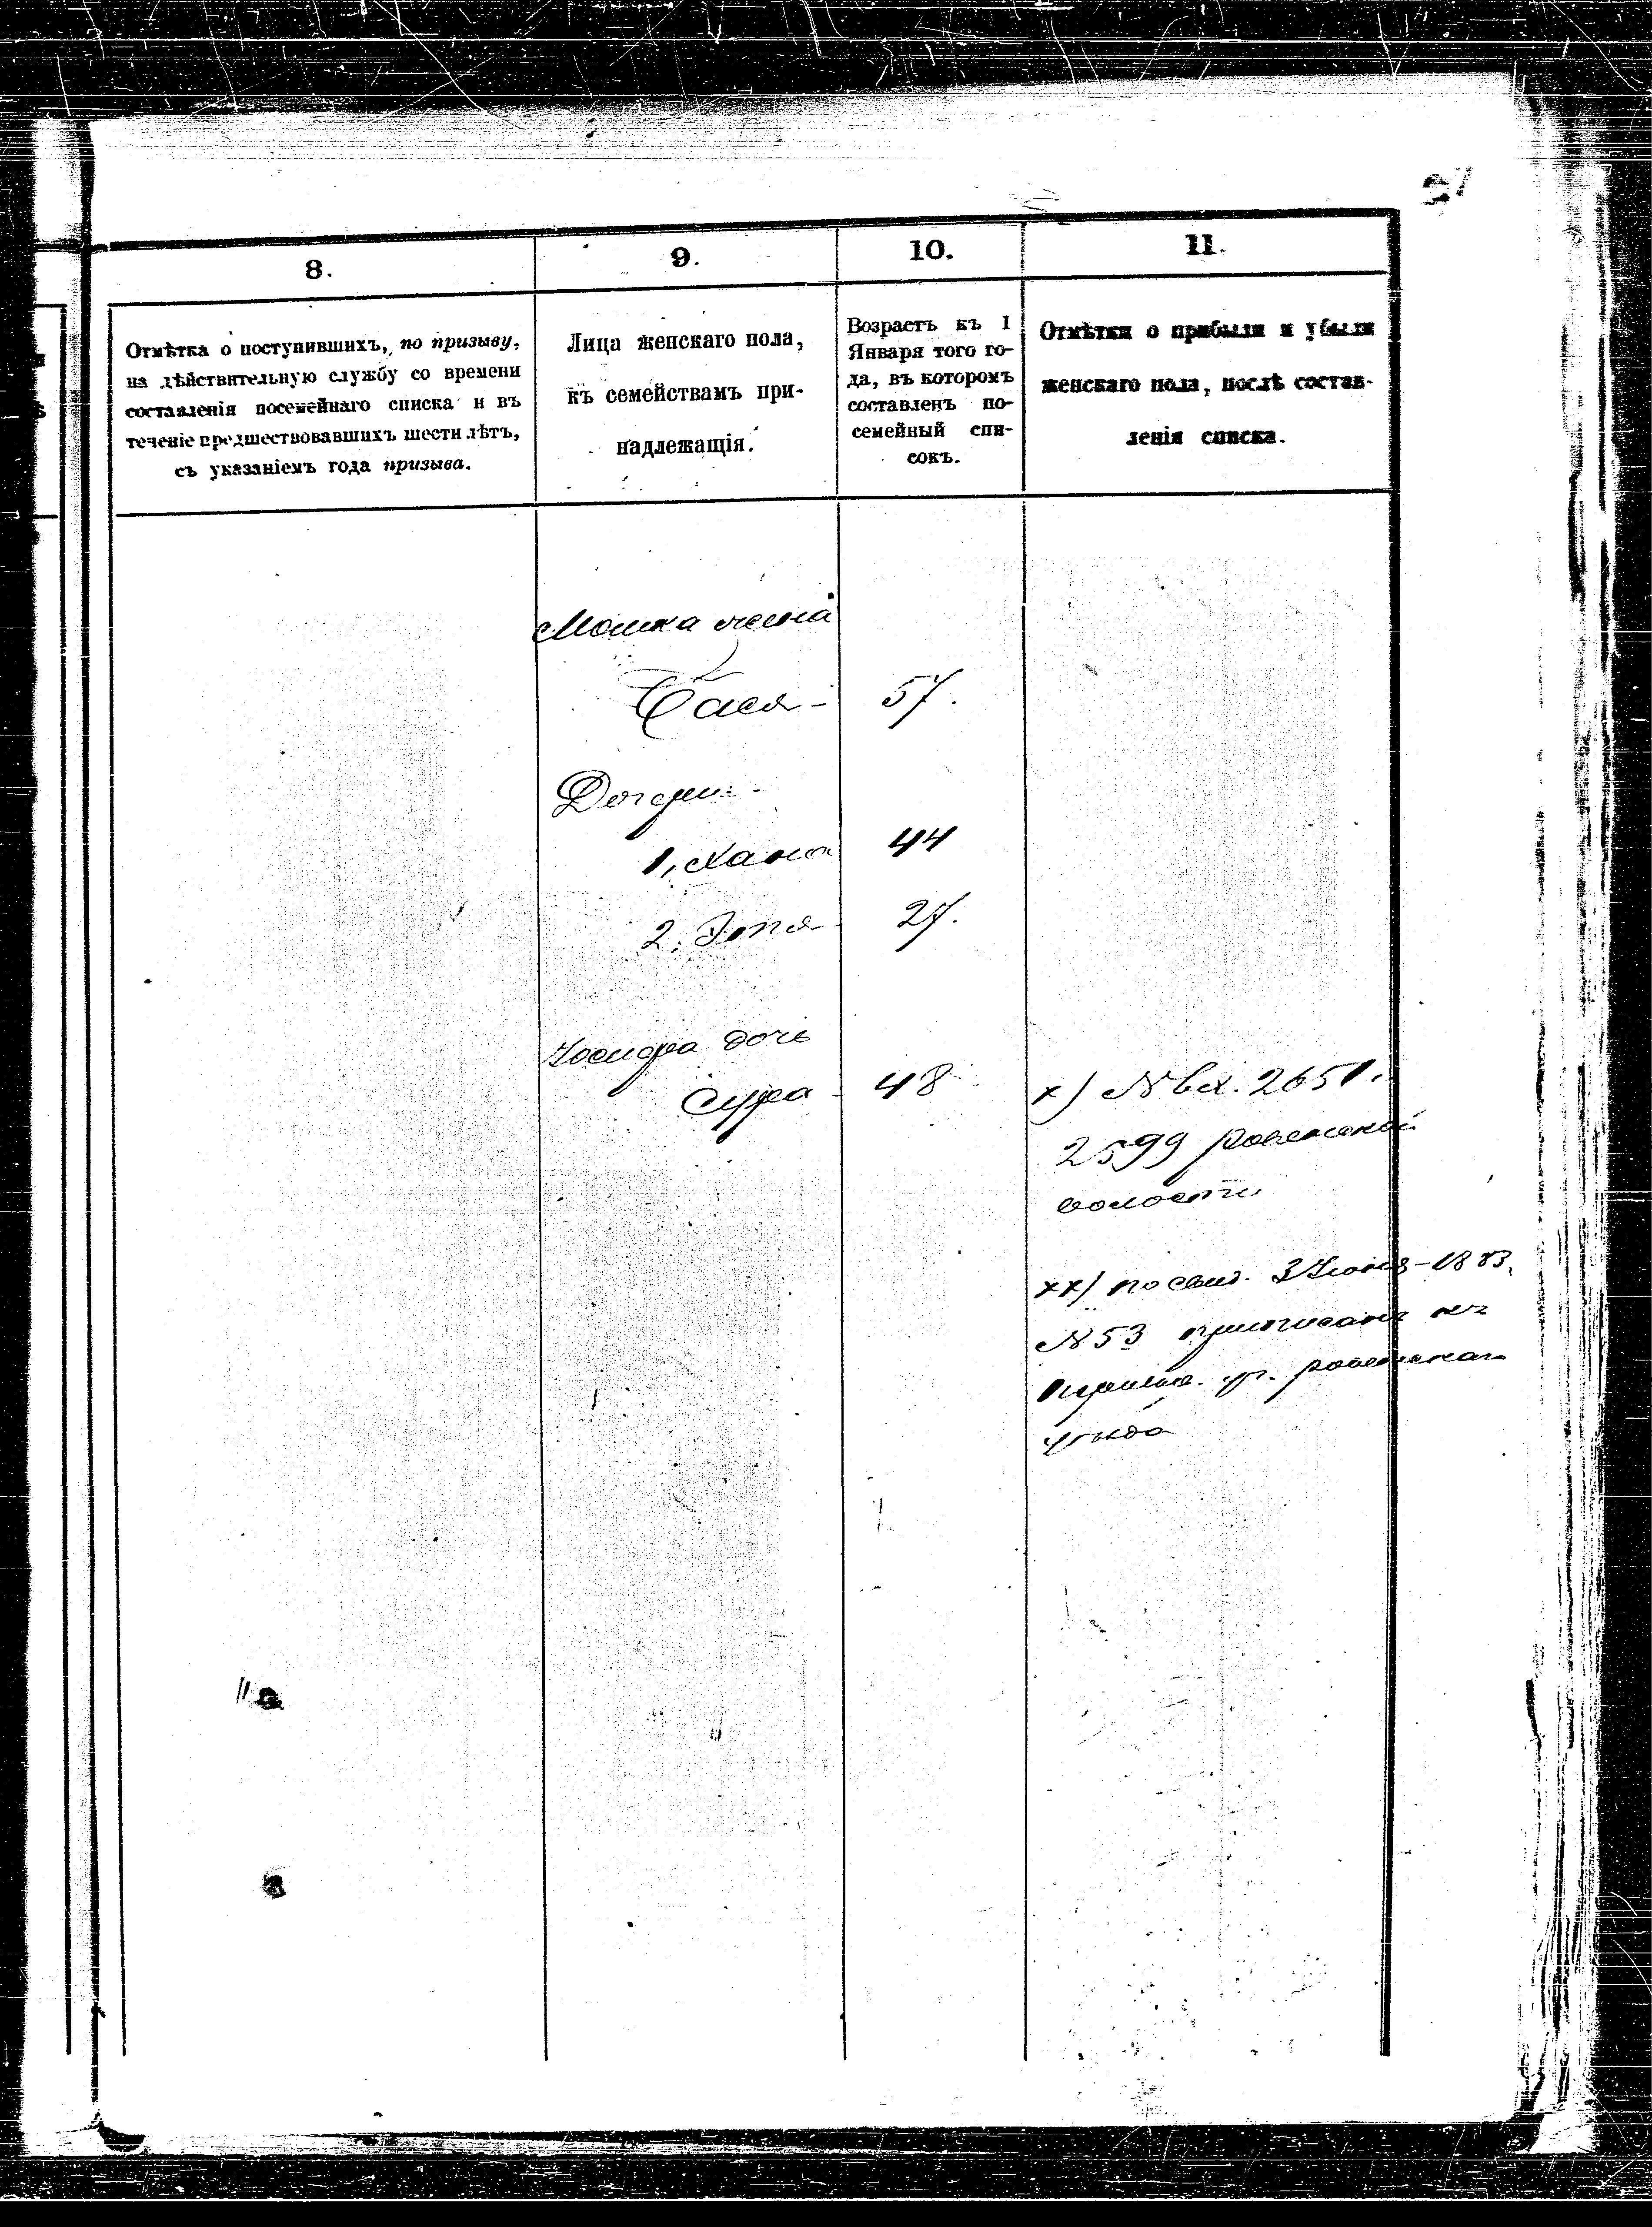 27
8.
9.
10.
11.
Отмѣтка о поступившихъ, по призыву,
на дѣйствительную службу со времени
составленія посемейнаго списка и въ
теченіе предшествовавшихъ шести лѣтъ,
съ указаніемъ года призыва.
Лица женскаго пола,
къ семействамъ при-
надлежащія.
Возрастъ къ 1
Января того го-
да, въ которомъ
составленъ по-
семейный спи-
сокъ.
Отмѣтки о прибыли и убыли
женскаго пола, послѣ состав-
ленія списка.
Мошка жена
Бася 57.
Дочери
1, Хана 44
2. 27.
дочь
Сура 48
х) № вх. 2651.
2599 Ровенской
волости
хх) по свид. 3 Июня 1883.
№ 53 приписанъ къ
ровенскаго
уѣзда